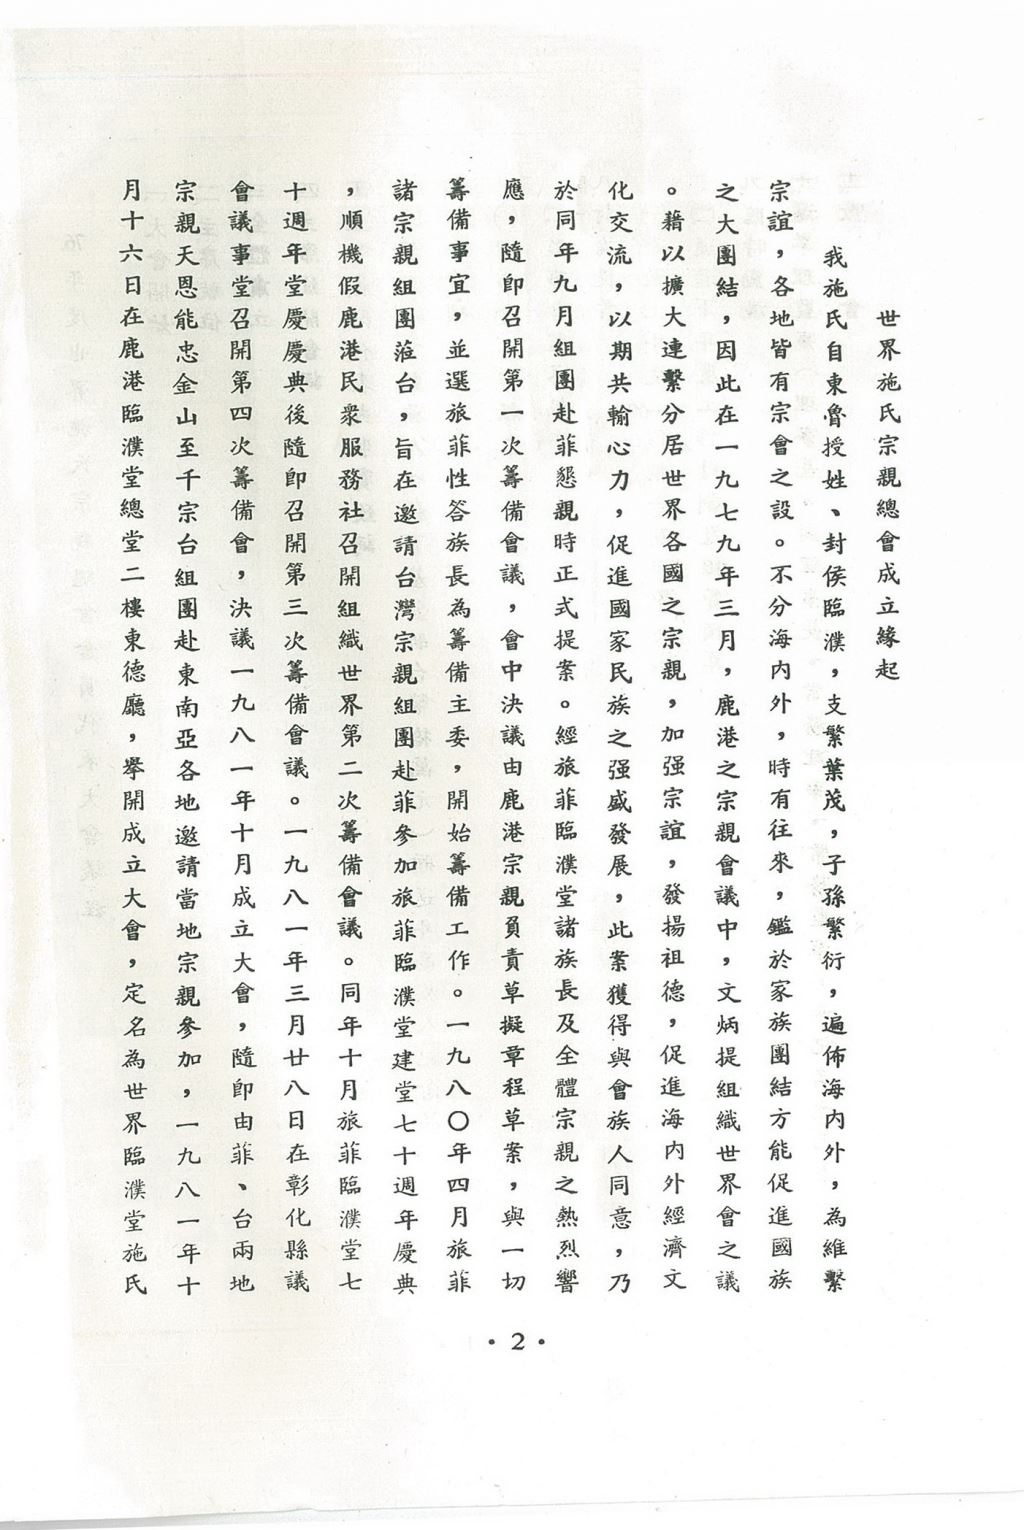 世界施氏宗親總會成立緣起
我施氏自東魯授姓、封侯臨濮，支繁葉茂，子孫繁衍，遍佈海內外，為維繫
宗誼，各地皆有宗會之設。不分海內外，時有往來，鑑於家族團結方能促進國族
之大團結，因此在一九七九年三月，鹿港之宗親會議中，文炳提組織世界會之議
。藉以擴大連繫分居世界各國之宗親，加强宗誼，發揚祖德，促進海內外經濟文
化交流，以期共輸心力，促進國家民族之强盛發展，此案獲得與會族人同意，乃
於同年九月組團赴菲懇親時正式提案。經旅菲臨濮堂諸族長及全體宗親之熱烈響
應，隨即召開第一次籌備會議，會中決議由鹿港宗親負責草擬章程草案，與一切
籌備事宜，並選旅菲性答族長為籌備主委，開始籌備工作。一九八〇年四月旅菲
諸宗親組團蒞台，旨在邀請台灣宗親組團赴菲參加旅菲臨濮堂建堂七十週年慶典
，順機假鹿港民衆服務社召開組織世界第二次籌備會議。同年十月旅菲臨濮堂七
十週年堂慶慶典後隨即召開第三次籌備會議。一九八一年三月廿八日在彰化縣議
會議事堂召開第四次籌備會，決議一九八一年十月成立大會，隨即由菲、台兩地
宗親天恩能忠金山至千宗台組團赴東南亞各地邀請當地宗親參加，一九八一年十
月十六日在鹿港臨濮堂總堂二樓東德廳，舉開成立大會，定名為世界臨濮堂施氏
• 2 •